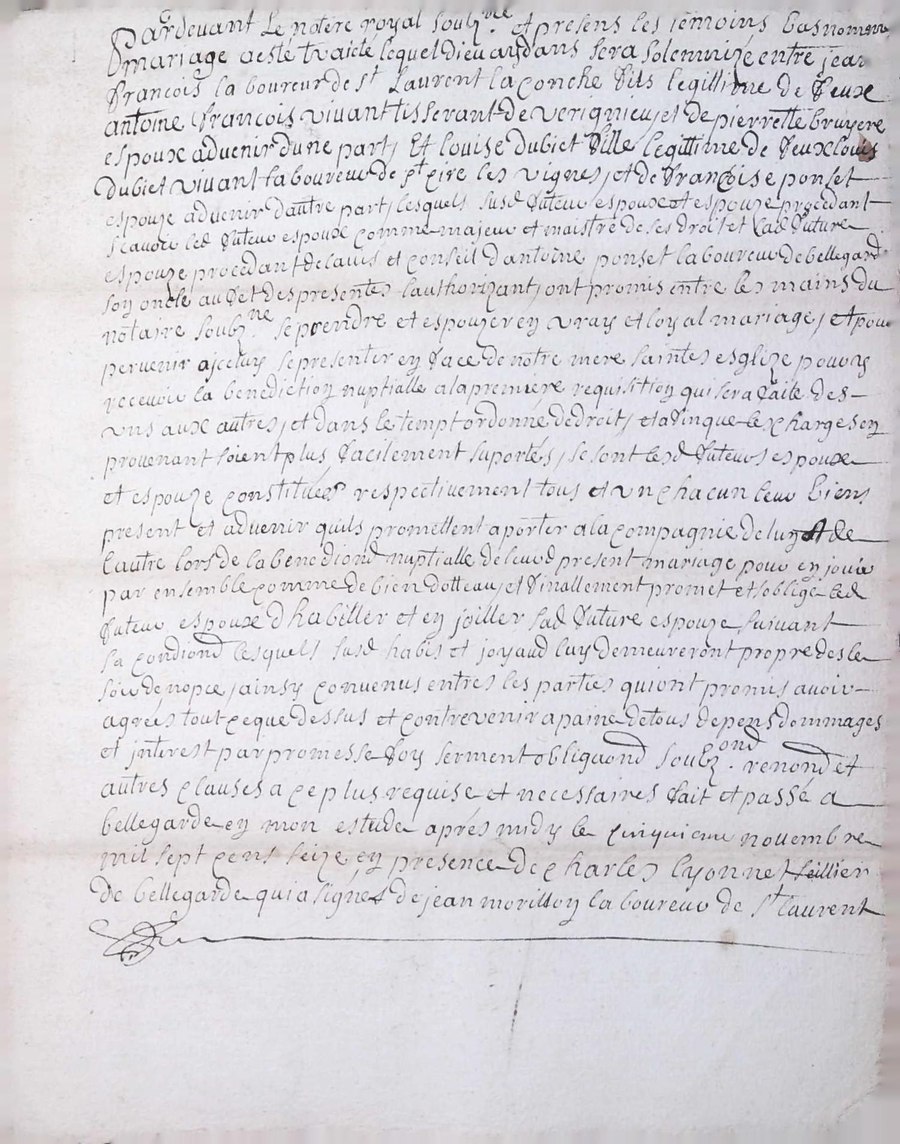 Pardevant Le notere royal soubz.ne Et presens les temoins bas nommes
mariage a esté traicté lequel dieu aydans sera solemnizé entre jean
francois laboureur de st Laurent la conche fils legittime de feux
antoine francois vivant tisserant de verignieu, et de pierrette bruyere
espoux advenir dune part, Et louise dubiet fille legittime de feux louis
dubiet vivant laboureur de st cire les vignes, et de francoise ponset
espouze advenir dautre part, lesquels susd futeur espoux et espouze procedant
scavoir led futeur espoux comme majeur et maistre de ses droit et lad future
espouze procedant de lavis et conseil dantoine ponset laboureur de bellegarde
son oncle au fet des presentes lauthorizant, ont promis entre les mains du
notaire soubz.ne se prendre et espouzer en vray et loyal mariage, et pour
pervenir a jceluy se presenter en face de notre mere saintes esglize pour y
recevoir la benediction nuptialle a la premiere requisition qui sera faite des
uns aux autres, et dans le tempt ordonne de droit, et afinque les charges en
provenant soient plus facilement suportés, se sont lesd futeurs espoux
et espouze constitués respectivement tous et un chacun leur biens
present et advenir quils promettent aporter a la compagnie de lun et de
lautre lors de la benediond nuptialle de leurd present mariage pour en jouir
par ensemble comme de bien dotteau, et finallement promet et soblige led
futeur espoux dhabiller et enjoiller sad future espouze suivant
sa condiond lesquels susd habis et joyaud luy demeureront propre des le
soir de nopce, ainsy convenus entres les parties qui ont promis avoir
agrées tout ceque dessus et contrevenir a paine de tous depens dommages
et jnterest par promesse foy serment obligaond soubz.ond renond et
autres clauses a ce plus requise et necessaires fait et passé a
bellegarde en mon estude aprés midy le cinquieme novembre
mil sept cens seize, en presence de charles lyonnet seillier
de bellegarde qui a signé et de jean morillon laboureur de st laurent